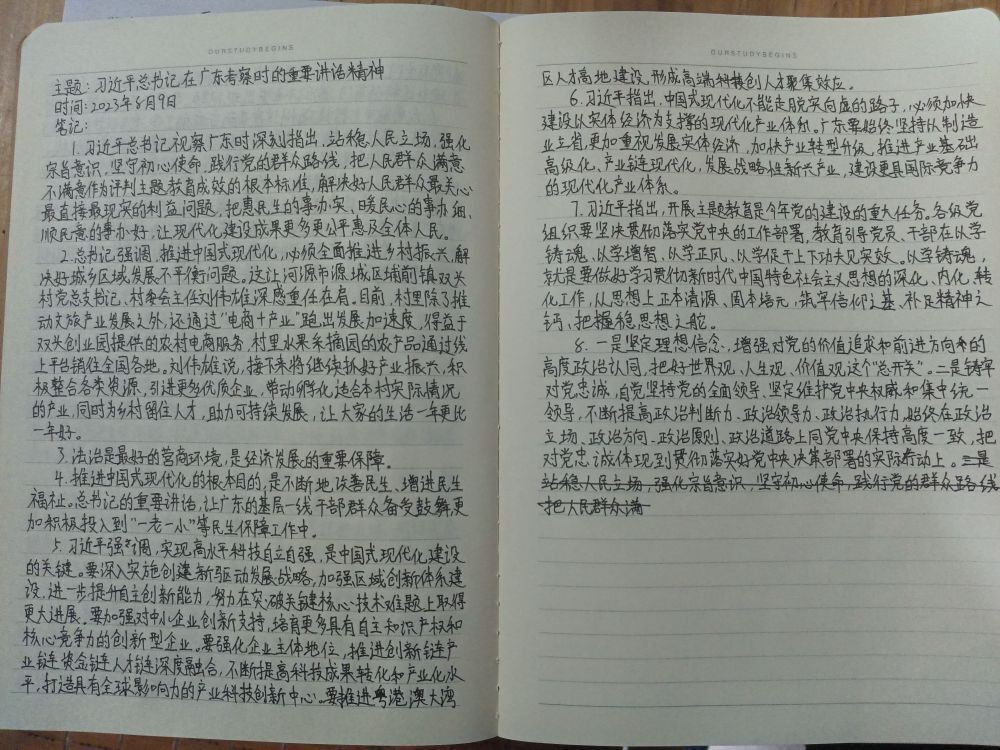 OURSTUDYBEGINS
主题：习近平总书记在广东考察时的重要讲话精神
时间：2023年8月9日
笔记：
1. 习近平总书记视察广东时深刻指出，站稳人民立场，强化
宗旨意识，坚守初心使命，践行党的群众路线，把人民群众满意
不满意作为评判主题教育成效的根本标准，解决好人民群众最关心
最直接最现实的利益问题，把惠民生的事办实、暖民心的事办细、
顺民意的事办好，让现代化建设成果更多更公平惠及全体人民。
2. 总书记强调，推进中国式现代化，必须全面推进乡村振兴，解
决好城乡区域发展不平衡问题。这让河源市源城区埔前镇双头
村党总支书记、村委会主任刘伟雄深感重任在肩。目前，村里除了推
动文旅产业发展之外，还通过“电商＋产业”跑出发展加速度，得益于
双头创业园提供的农村电商服务，村里水果采摘园的农产品通过线
上平台销往全国各地。刘伟雄说，接下来将继续抓好产业振兴，积
极整合各类资源，引进更多优质企业，带动孵化适合本村实际情况
的产业，同时为乡村留住人才，助力可持续发展，让大家的生活一年更比
一年好。
3. 法治是最好的营商环境，是经济发展的重要保障。
4. 推进中国式现代化的根本目的，是不断地改善民生、增进民生
福祉。总书记的重要讲话，让广东的基层一线干部群众备受鼓舞，更
加积极投入到“一老一小”等民生保障工作中。
5. 习近平强调，实现高水平科技自立自强，是中国式现代化建设
的关键。要深入实施创建新驱动发展战略，加强区域创新体系建
设，进一步提升自主创新能力，努力在突破关键核心技术难题上取得
更大进展。要加强对中小企业创新支持，培育更多具有自主知识产权和
核心竞争力的创新型企业。要强化企业主体地位，推进创新链产
业链资金链人才链深度融合，不断提高科技成果转化和产业化水
平，打造具有全球影响力的产业科技创新中心。要推进粤港澳大湾
OURSTUDYBEGINS
区人才高地建设，形成高端科技创人才聚集效应。
6. 习近平指出，中国式现代化不能走脱实向虚的路子，必须加快
建设以实体经济为支撑的现代化产业体系。广东要始终坚持从制造
业立省，更加重视发展实体经济，加快产业转型升级，推进产业基础
高级化、产业链现代化，发展战略性新兴产业，建设更具国际竞争力
的现代化产业体系。
7. 习近平指出，开展主题教育是今年党的建设的重大任务。各级党
组织要坚决贯彻落实党中央的工作部署，教育引导党员、干部在以学
铸魂、以学增智、以学正风、以学促干上下功夫见实效。以学铸魂，
就是要做好学习贯彻新时代中国特色社会主义思想的深化、内化、转
化工作，从思想上正本清源、固本培元，筑牢信仰之基、补足精神之
钙、把握稳思想之舵。
8. 一是坚定理想信念，增强对党的价值追求和前进方向的
高度政治认同，把好世界观、人生观、价值观这个“总开关”。二是铸牢
对党忠诚，自觉坚持党的全面领导、坚定维护党中央权威和集中统一
领导，不断提高政治判断力、政治领导力、政治执行力，始终在政治
立场、政治方向、政治原则、政治道路上同党中央保持高度一致，把
对党忠诚体现到贯彻落实好党中央决策部署的实际行动上。三是
站稳人民立场，强化宗旨意识，坚守初心使命，践行党的群众路线
把人民群众满